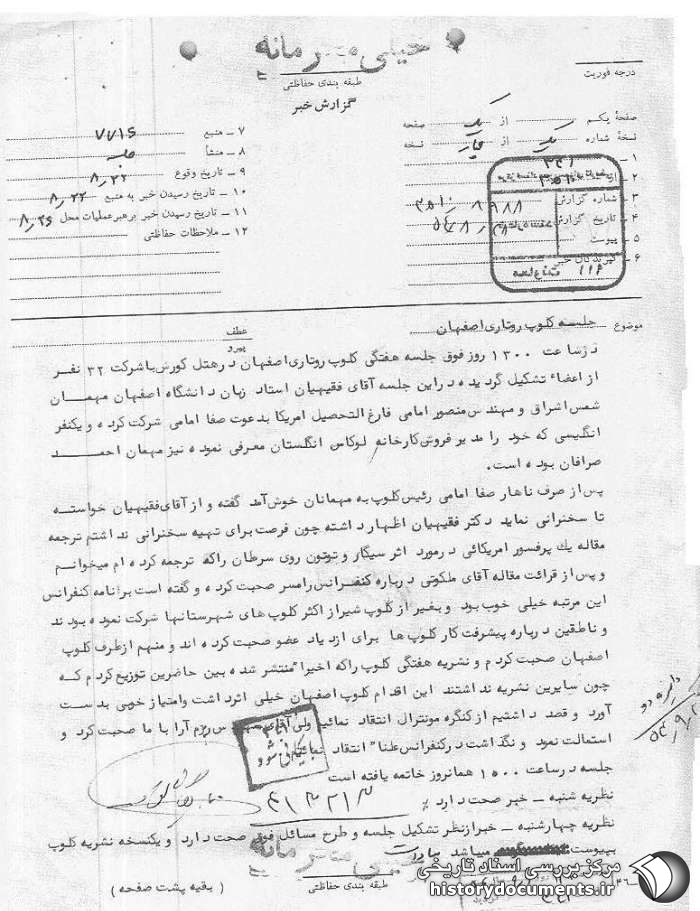 خیلی محرمانه
طبقه بندی حفاظتی
گزارش خبر
درجه فوریت
صفحهٔ یکم از یک صفحه
نسخهٔ شماره یک از چهار نسخه
۱ ـ ۳۴۱
۲ ـ
۳ ـ شماره گزارش ۸۹۸۸
۴ ـ تاریخ گزارش
۵ ـ پیوست
۶ ـ گیرندگان خبر
۷ ـ منبع ۷۷۱۵
۸ ـ منشأ
۹ ـ تاریخ وقوع ۸٫۲۲
۱۰ ـ تاریخ رسیدن خبر به منبع ۸٫۲۲
۱۱ ـ تاریخ رسیدن خبر برهبر عملیات محل ۸٫۲۶
۱۲ ـ ملاحظات حفاظتی
موضوع جلسه کلوپ روتاری اصفهان
عطف
پیرو
در ساعت ۱۳۰۰ روز فوق جلسه هفتگی کلوپ روتاری اصفهان در هتل کورش با شرکت ۳۲ نفر
از اعضاء تشکیل گردیده در این جلسه آقای فقیهیان استاد زبان دانشگاه اصفهان مهمان
شمس اشراق و مهندس منصور امامی فارغ التحصیل امریکا بدعوت صفا امامی شرکت کرده و یکنفر
انگلیسی که خود را مدیر فروش کارخانه لوکاس انگلستان معرفی نموده نیز مهمان احمد
صرافان بوده است.
پس از صرف ناهار صفا امامی رئیس کلوپ به مهمانان خوش آمد گفته و از آقای فقیهیان خواسته
تا سخنرانی نماید دکتر فقیهیان اظهار داشته چون فرصت برای تهیه سخنرانی نداشتم ترجمه
مقاله یك پرفسور امریکائی در مورد اثر سیگار و توتون روی سرطان را که ترجمه کرده ام میخوانم
و پس از قرائت مقاله آقای ملکوتی درباره کنفرانس رامسر صحبت کرده و گفته است برنامه کنفرانس
این مرتبه خیلی خوب بود و بغیر از کلوپ شیراز اکثر کلوپ های شهرستانها شرکت نموده بودند
و ناطقین درباره پیشرفت کار کلوپ ها برای ازدیاد عضو صحبت کرده اند و منهم از طرف کلوپ
اصفهان صحبت کردم و نشریه هفتگی کلوپ را که اخیراً منتشر شده بین حاضرین توزیع کردم که
چون سایرین نشریه نداشتند این اقدام کلوپ اصفهان خیلی اثر داشت و امتیاز خوبی بدست
آورد و قصد داشتیم از کنگره مونترال انتقاد نمائیم ولی آقای بزم آرا با ما صحبت کرد و
استمالت نمود و نگذاشت در کنفرانس علناً انتقاد نمائیم
جلسه در ساعت ۱۵۰۰ همانروز خاتمه یافته است
نظریه شنبه ـ خبر صحت دارد.
نظریه چهارشنبه ـ خبر از نظر تشکیل جلسه و طرح مسائل فوق صحت دارد و یکنسخه نشریه کلوپ
بپیوست میباشد
خیلی محرمانه
طبقه بندی حفاظتی
( بقیه پشت صفحه )
مرکز بررسی اسناد تاریخی
historydocuments.ir